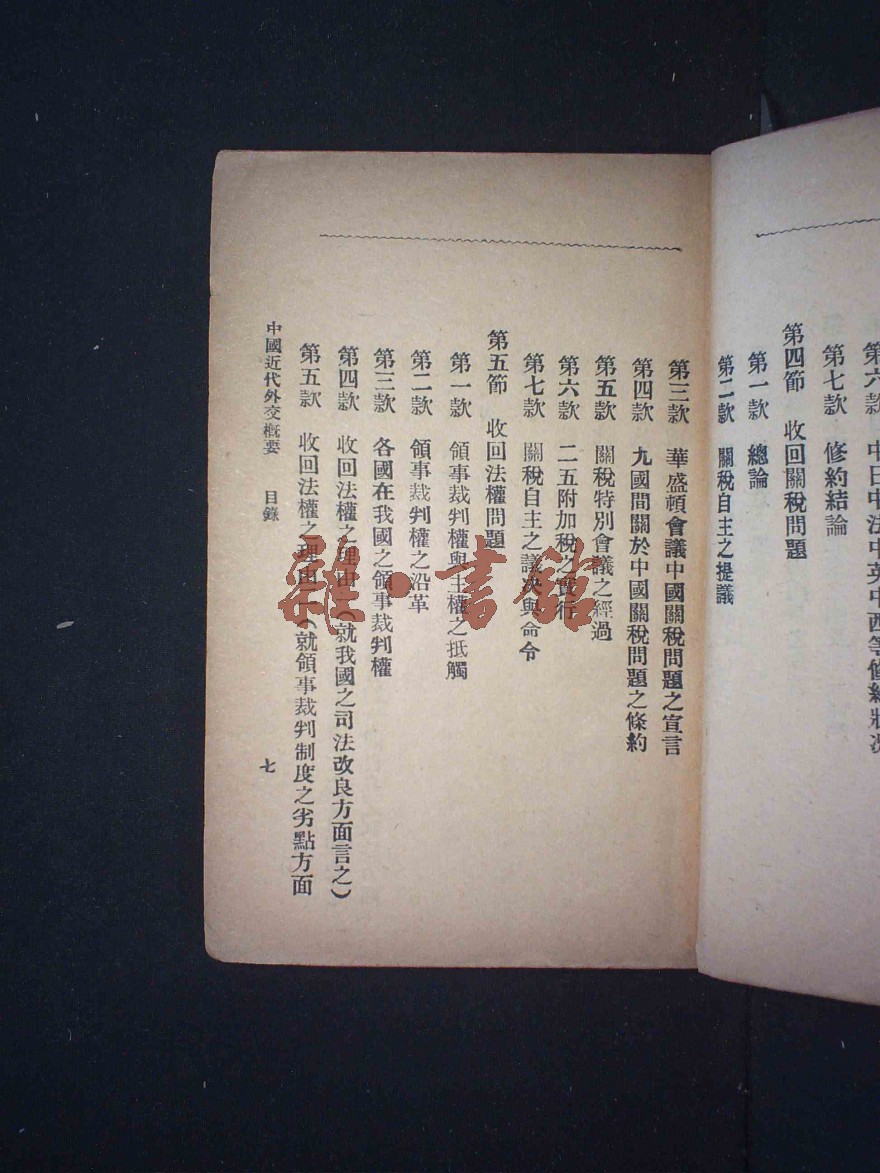 第六款　中日中法中英中西等修約狀況
第七款　修約結論
第四節　收回關稅問題
第一款　總論
第二款　關稅自主之提議
第三款　華盛頓會議中國關稅問題之宣言
第四款　九國間關於中國關稅問題之條約
第五款　關稅特別會議之經過
第六款　二五附加稅之實行
第七款　關稅自主之議決與命令
第五節　收回法權問題
第一款　領事裁判權與主權之抵觸
第二款　領事裁判權之沿革
第三款　各國在我國之領事裁判權
第四款　收回法權之理由一（就我國之司法改良方面言之）
第五款　收回法權之理由二（就領事裁判制度之劣點方面
中國近代外交概要　目錄　七
雜·書館